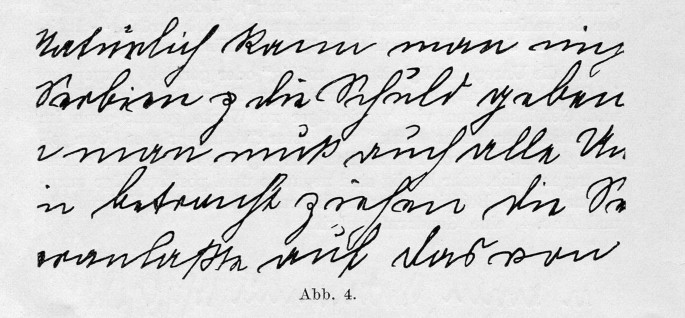 Natürlich kann man
Serbien z die Schuld geben
man muß auch alle
in betracht ziehen die Se
eranlaßte auf das von
Abb. 4.